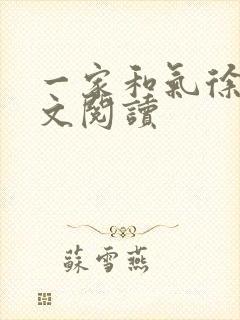 一家和氣徐
文閱讀
蘇雪燕